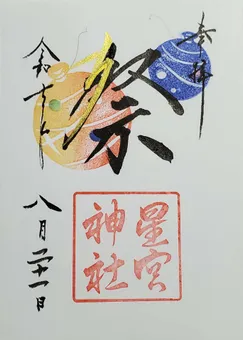 奉拝
祭
令和七年
八月二十一日
星宮
神社